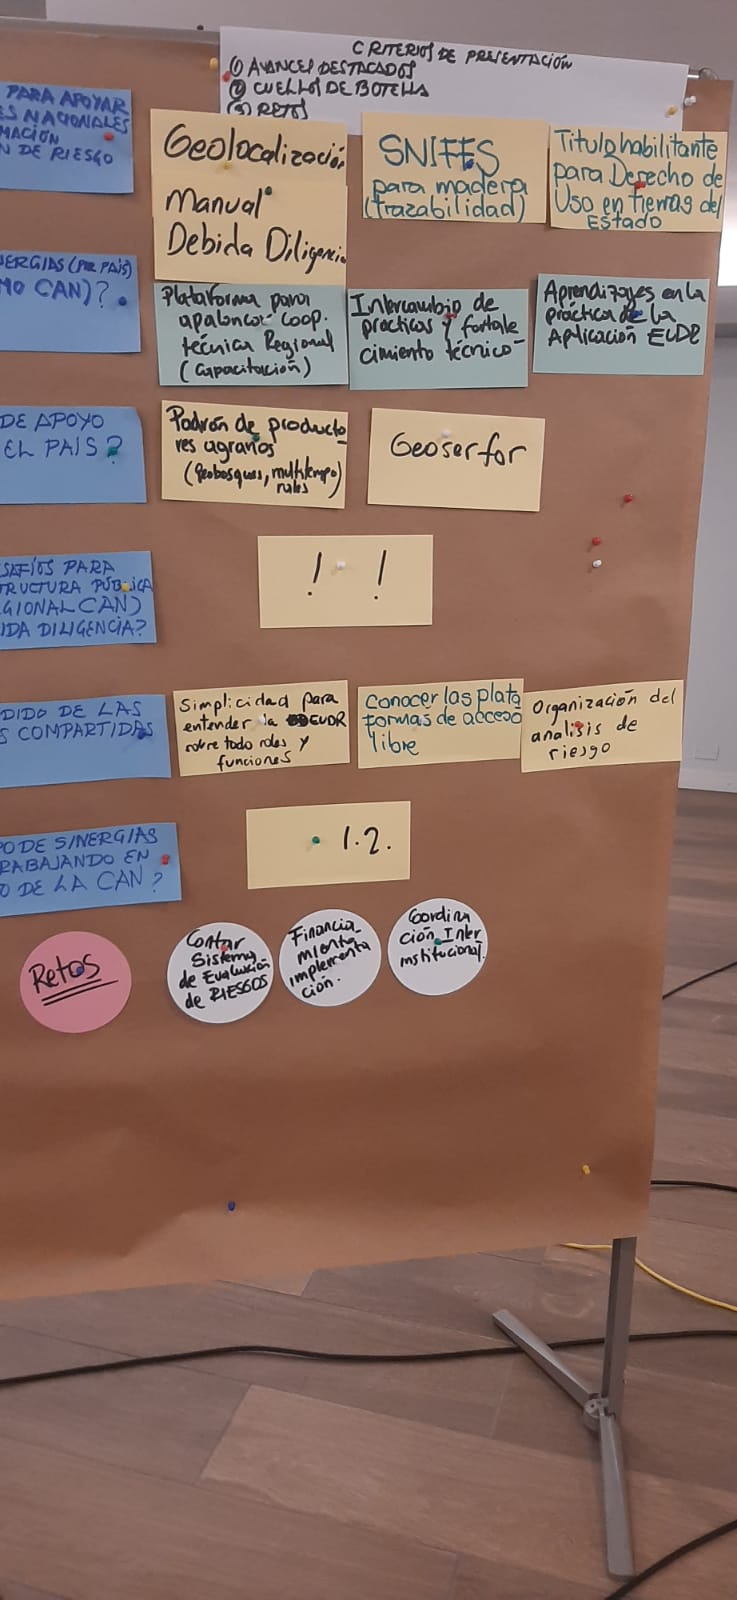 CRITERIOS DE PRESENTACIÓN
① AVANCES DESTACADOS
② CUELLOS DE BOTELLA
③ RETOS
PARA APOYAR
ES NACIONALES
MACIÓN
N DE RIESGO
Geolocalización
Manual
Debida Diligencia
SNIFFS
para madera
(trazabilidad)
Titulo habilitante
para Derecho de
Uso en tierras del
ESTADO
NERGIAS (POR PAIS)
MO CAN)?
Plataforma para
apalancar coop.
técnica Regional
(Capacitación)
Intercambio de
practicas y fortale
cimiento técnico
Aprendizajes en la
práctica de la
Aplicación EUDR
DE APOYO
EL PAIS?
Padrón de producto
res agrarios
(Geobosques, multitempo
rales)
Geoserfor
SAFÍOS PARA
TRUCTURA PÚBLICA
GIONAL CAN)
IDA DILIGENCIA?
! !
DIDO DE LAS
S COMPARTIDAS
Simplicidad para
entender la EUDR
sobre todo roles y
funciones
Conocer las plata
formas de acceso
libre
Organización del
analisis de
riesgo
PO DE SINERGIAS
RABAJANDO EN
O DE LA CAN?
1.2.
Retos
Contar
Sistema
de Evaluación
de RIESGOS
Financia
miento
implementa
ción.
Coordina
ción Inter
institucional.